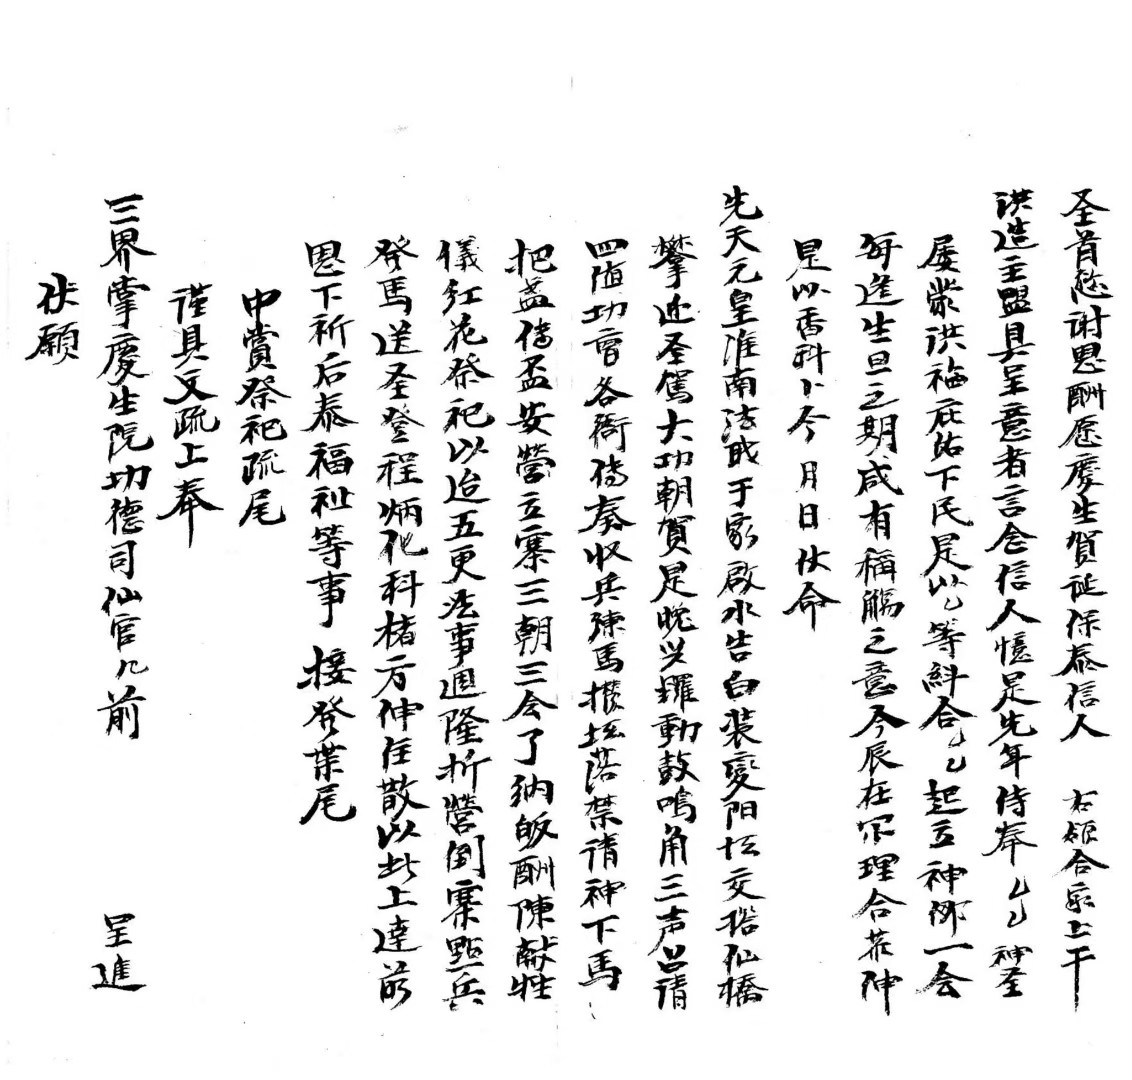 圣首愆谢恩酬愿庆生贺诞保泰信人 右领合家上干
洪造主盟具呈意者言念信人憶是先年侍奉乙乙神圣
屡蒙洪福庇佑下民是以乙等糾合乙乙起立神⻏一会
每逢生旦之期咸有稱觴之意今辰在 理合 伸
是以香科卜今 月日伏命
先天元皇淮南法戝于家啟水告白装變阳坛交搭仙橋
攀迎圣駕大功朝賀是晚光耀動鼓鳴角三声吕请
四值功曹各衙傳奏收兵陳馬 坛落禁请神下馬
把盏傳盃安營立寨三朝三会了纳皈酬陳献牲
儀红花祭祀以迨五更法事週隆折營倒寨點兵
發馬送圣登程炳化科楮方伸任散以此上達前
恩下祈后泰福祉等事 接發葉尾
中賞祭祀疏尾
谨具文疏上奉
三界掌慶生院功德司仙官几前 呈進
伏願